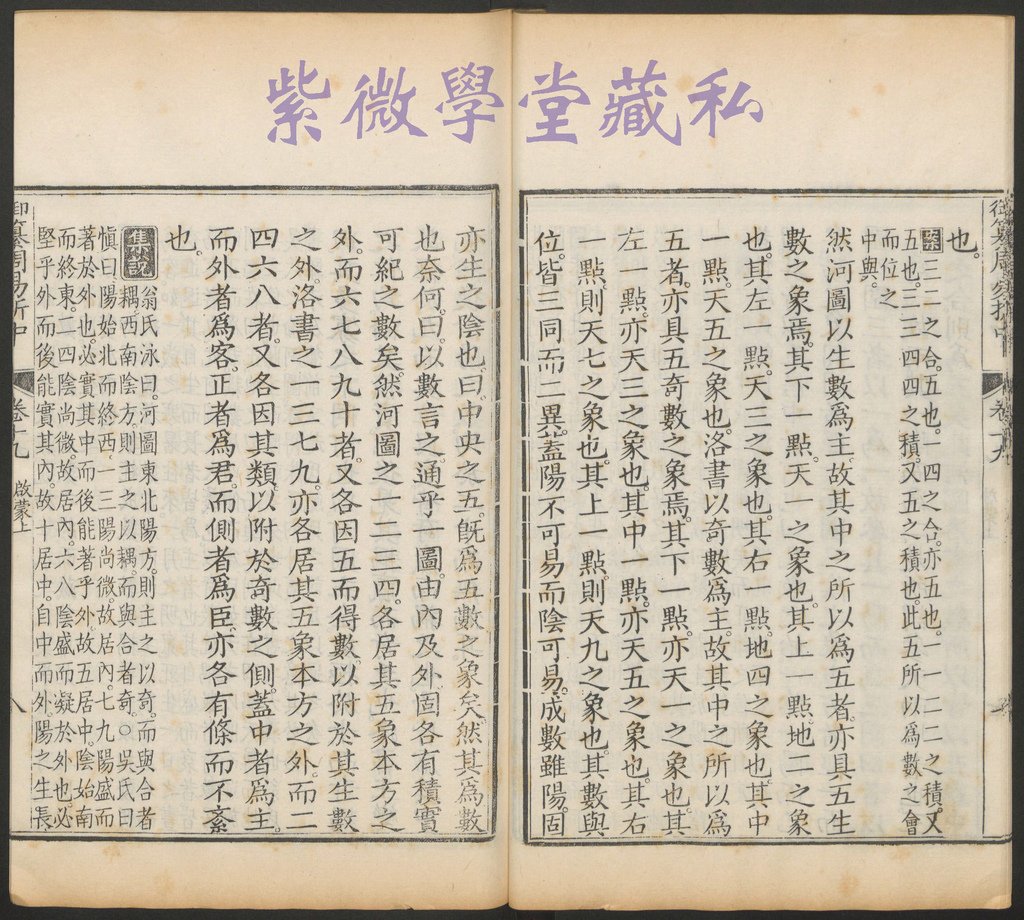 紫微學堂藏私
也。
案 三二之合。五也。一四之合。亦五也。一一二二之積。又
五也。三三四四之積。又五之積也。此五所以爲數之會
而位之
中與。
然河圖以生數爲主。故其中之所以爲五者。亦具五生
數之象焉。其下一點。天一之象也。其上一點。地二之象
也。其左一點。天三之象也。其右一點。地四之象也。其中
一點。天五之象也。洛書以奇數爲主。故其中之所以爲
五者。亦具五奇數之象焉。其下一點。亦天一之象也。其
左一點。亦天三之象也。其中一點。亦天五之象也。其右
一點。則天七之象也。其上一點。則天九之象也。其數與
位。皆三同而二異。蓋陽不可易而陰可易。成數雖陽。固
亦生之陰也。曰。中央之五。旣爲五數之象矣。然其爲數
也奈何。曰。以數言之。通乎一圖。由內及外。固各有積實
可紀之數矣。然河圖之一二三四。各居其五象本方之
外。而六七八九十者。又各因五而得數。以附於其生數
之外。洛書之一三七九。亦各居其五象本方之外。而二
四六八者。又各因其類。以附於奇數之側。蓋中者爲主。
而外者爲客。正者爲君。而側者爲臣。亦各有條而不紊
也。
集說 翁氏泳曰。河圖東北陽方。則主之以奇。而與合者
耦。西南陰方。則主之以耦。而與合者奇。○吳氏曰
愼曰。陽始北而終西。一三陽尚微。故居內。七九陽盛而
著於外也。必實其中而後能著乎外。故五居中。陰始南
而終東。二四陰尚微。故居內。六八陰盛而凝於外也。必
堅乎外而後能實其內。故十居中。自中而外。陽之生長
御纂周易折中 卷十九 啟蒙上 八